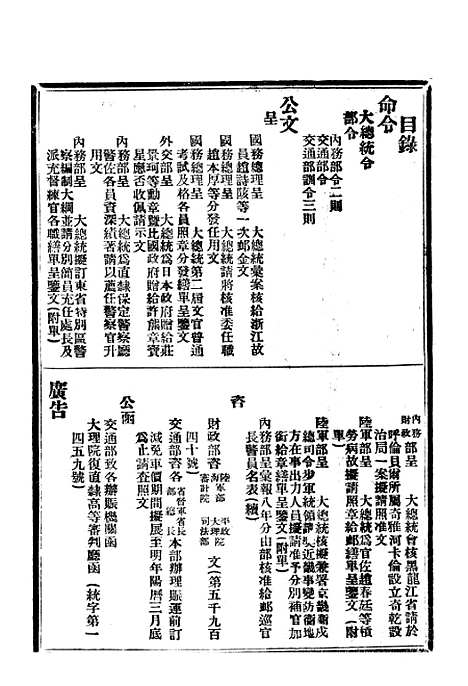 目錄
命令
大總統令
部令
內務部令二則
交通部令
交通部訓令三則
公文
呈
國務總理呈　大總統彙案核給浙江故
員趙詩陔等一次卹金文
國務總理呈　大總統請將核准委任職
趙本厚等分發任用文
國務總理呈　大總統第二屆文官普通
考試及格各員照章分發繕單呈鑒文
外交部呈　大總統為日本政府贈給莊
景珂等勳章暨比國政府贈給許熊章寶
星應否收佩請示文
內務部呈　大總統為直隸保定警察廳
警佐各員資深績著請以薦任警察官升
用文
內務部呈　大總統擬訂東省特別區警
察編制大綱並請分別簡員充任處長及
派充督練官各職繕單呈鑒文（附單）
內務
財政部呈　大總統會核黑龍江省請於
呼倫貝爾所屬奇雅河卡倫設立奇乾設
治局一案擬請照准文
陸軍部呈　大總統為官佐趙春廷等積
勞病故擬請照章給卹繕單呈鑒文（附
單）
陸軍部呈　大總統核擬兼署京畿衛戍
總司令步軍統領請近畿事變防衛地
方在事出力人員擬請准予分別補官加
銜給章繕單呈鑒文（附單）
內務部呈彙報八年分由部核准給卹巡官
長警員名表（續）
咨
財政部咨陸軍部 海軍部 審計院 平政院 大理院 司法部　文（第五千九百
四十號）
交通部咨各省督軍省長 部總長 本部辦理賑運前訂
減免車價期間擬展至明年陽曆三月底
為止請查照文
公函
交通部致各辦賑機關函
大理院復直隸高等審判廳函（統字第一
四五九號）
廣告